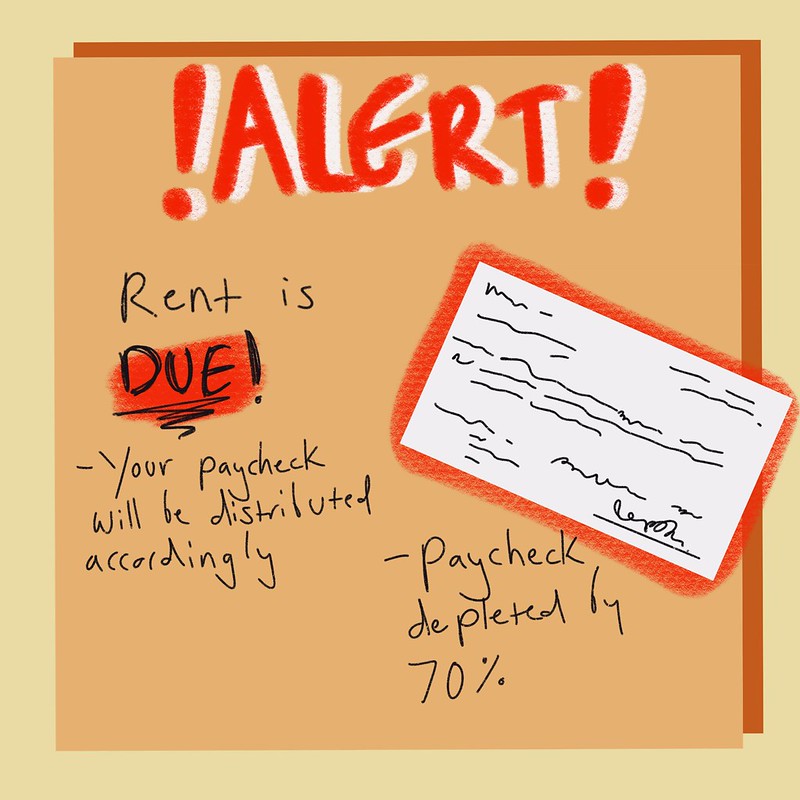 !ALERT!
Rent is
DUE!
- Your paycheck
will be distributed
accordingly
- Paycheck
depleted by
70%